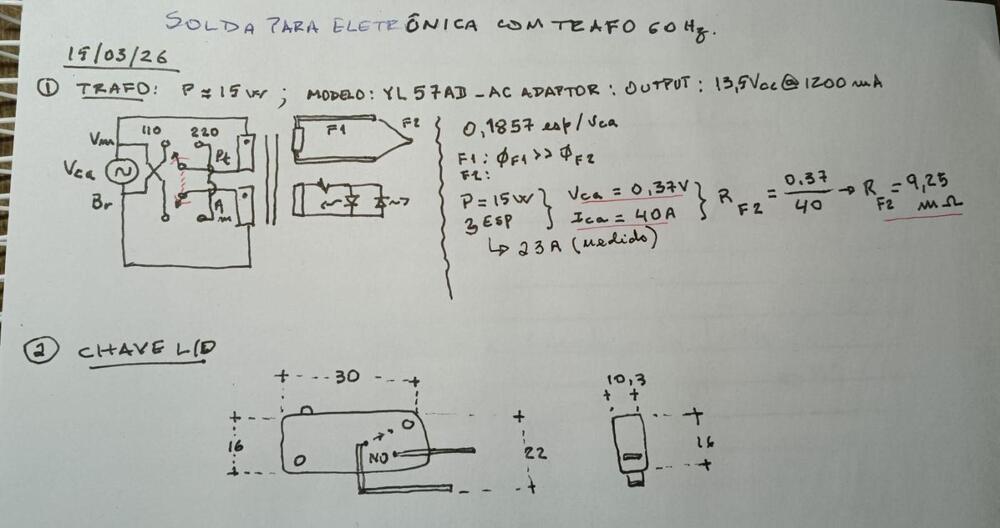 SOLDA PARA ELETRÔNICA COM TRAFO 60 Hz.
15/03/26
① TRAFO: P = 15W ; MODELO: YL57AD - AC ADAPTOR : OUTPUT: 13,5Vcc @ 1200 mA
110 220
Vm
Vca
Br
Pt
F1
F2
0,1857 esp/Vca
F1: ϕF1 >> ϕF2
F2:
P = 15W
3 ESP
Vca = 0,37V
Ica = 40A
RF2 = 0,37/40 → RF2 = 9,25 mΩ
↳ 23A (medido)
② CHAVE L/D
30
10,3
16
NO
22
16